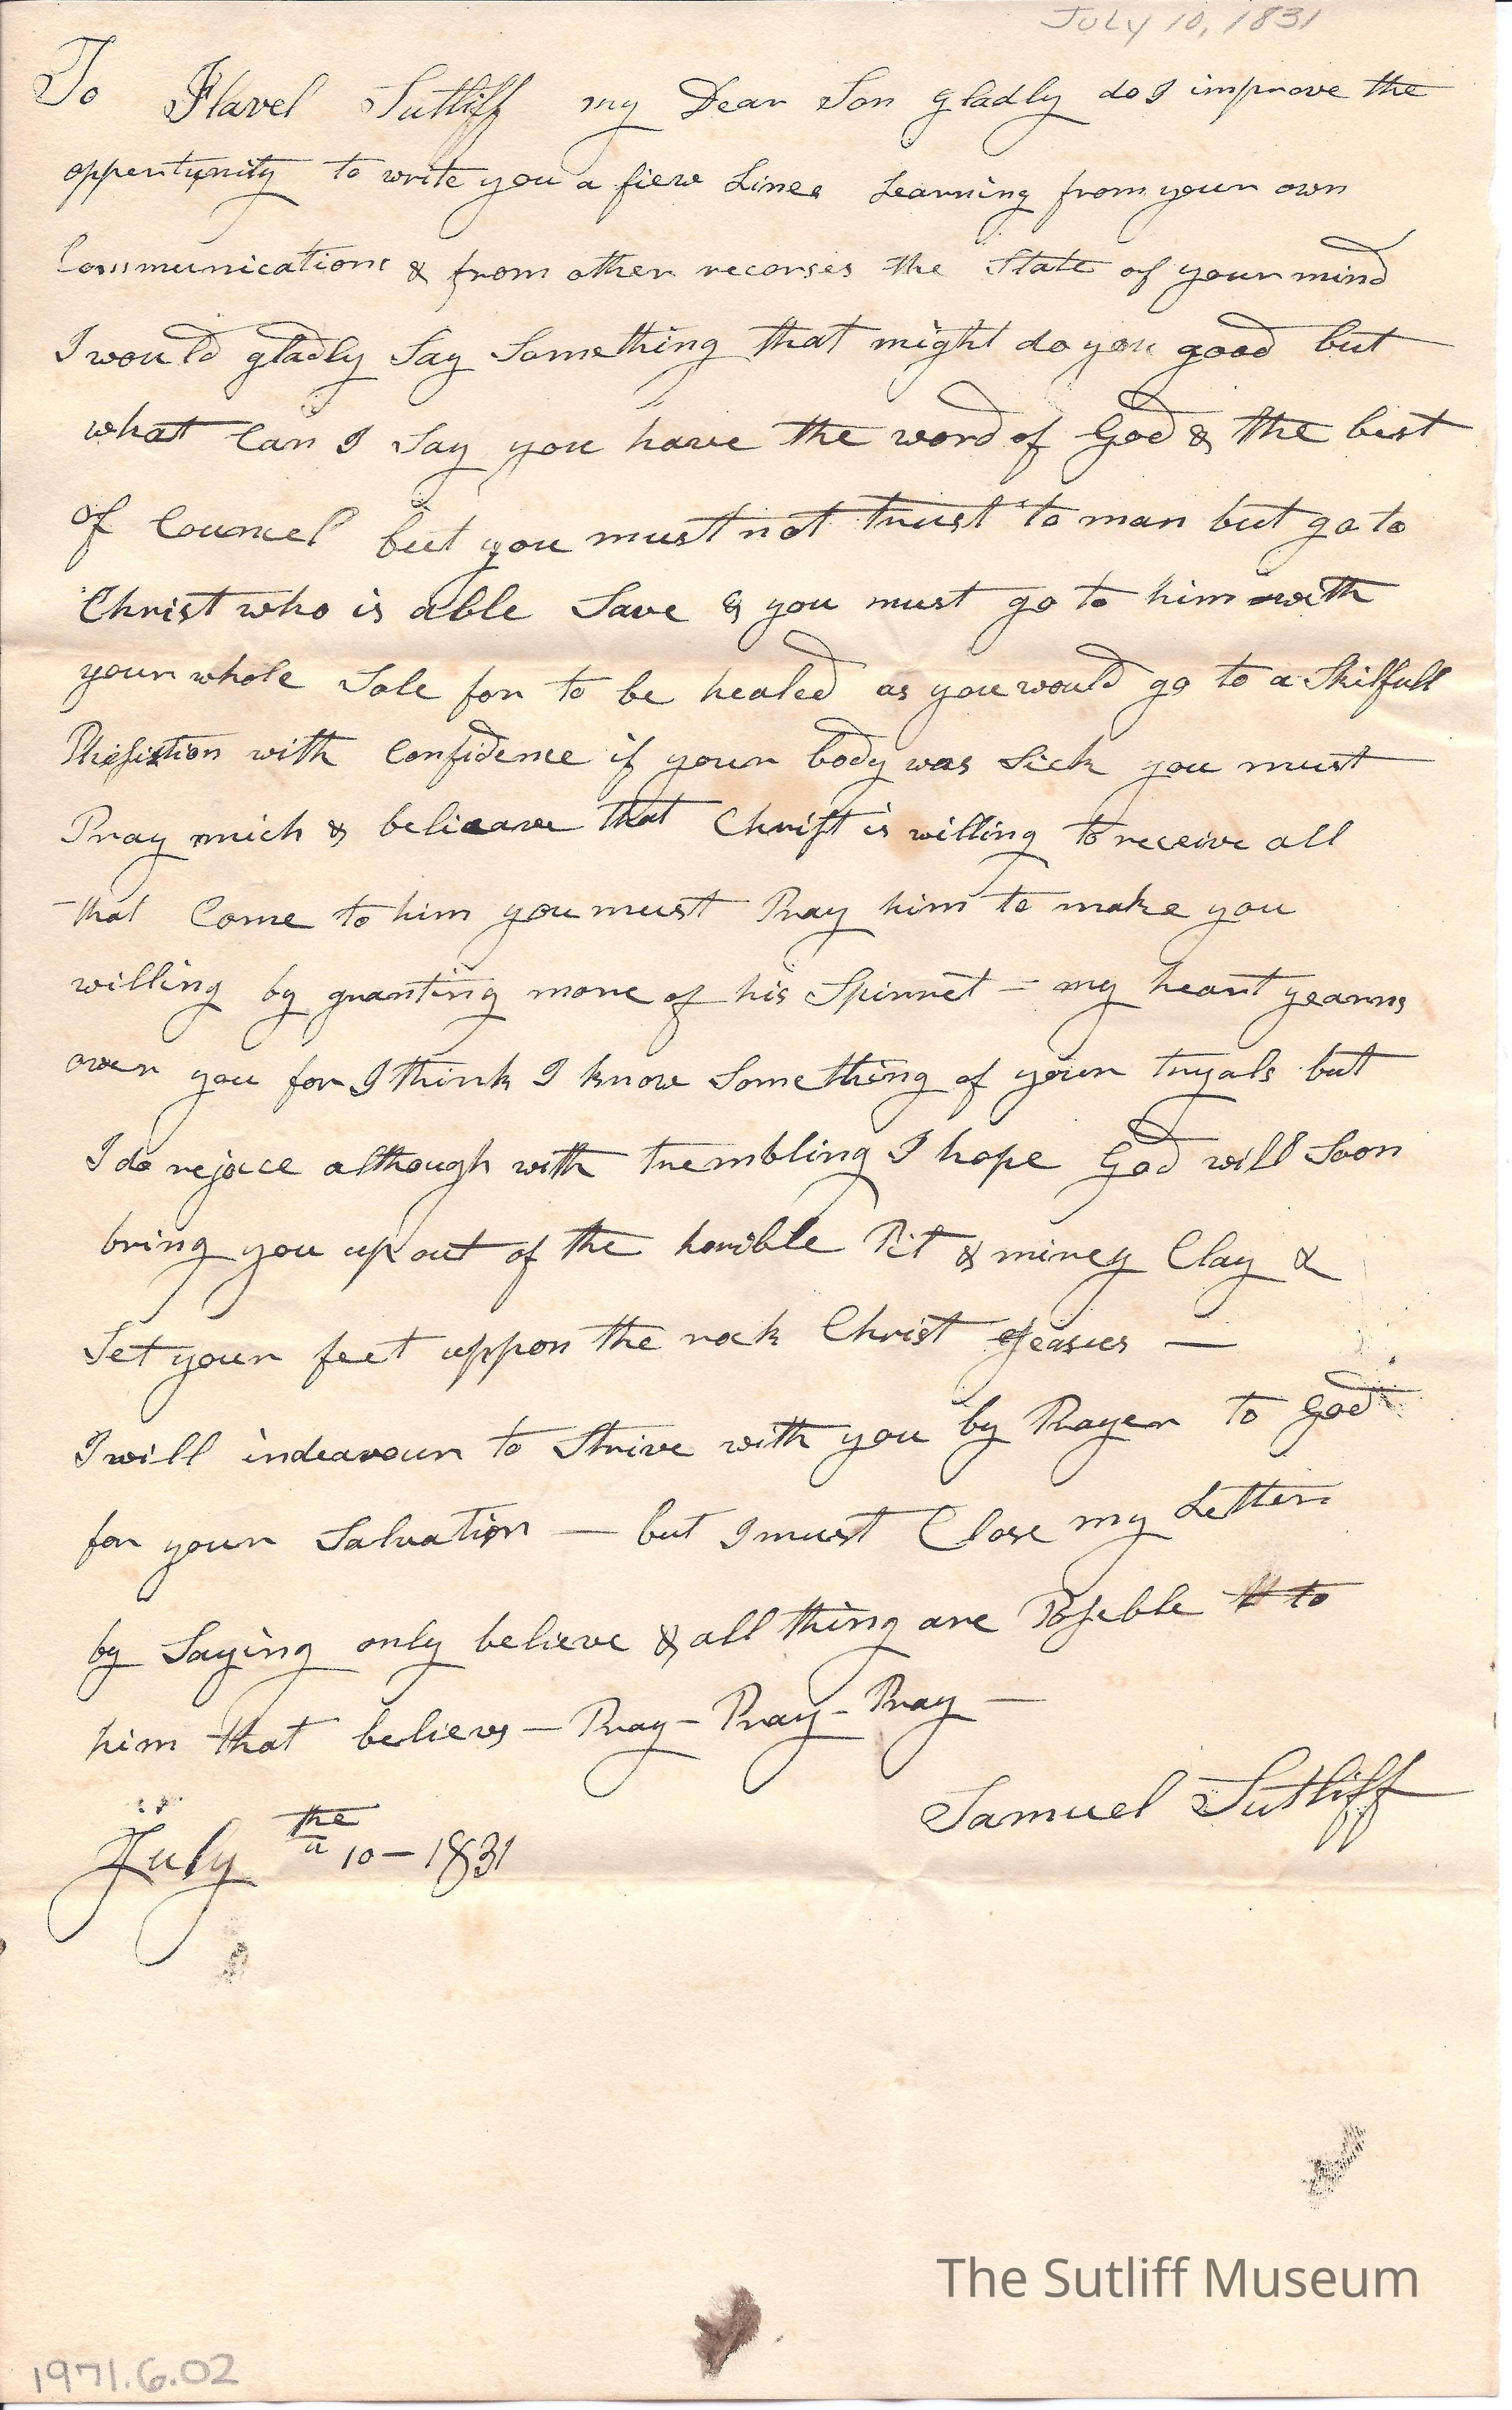 July 10, 1831
To Flavel Sutliff my Dear Son gladly do I improve the
oppertunity to write you a fiew Lines Learning from your own
Communications & from other recorses the State of your mind
I would gladly Say Something that might do you good but
what Can I Say you have the word of God & the best
of Councel but you must not trust to man but go to
Christ who is able Save & you must go to him with
your whole Sole for to be healed as you would go to a Skilfull
with Confidence if your body was Sick you must
Pray much & that Christ is willing to receive all
that Come to him you must Pray him to make you
willing by granting more of his Spirret - my heart yearns
over you for I think I know Something of your tryals but
I do rejoce although with trembling I hope God will Soon
bring you up out of the horible Pit & mirey Clay &
Set your feet uppon the rock Christ Jeasus —
I will indeavour to Strive with you by Prayer to God
for your Salvation — but I must Close my Letter
by Saying only believe & all thing are Posible to
him that believs — Pray - Pray - Pray —
Samuel Sutliff
July the 10 - 1831
The Sutliff Museum
1971.6.02